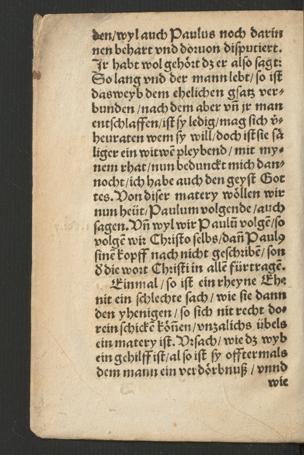 den/wyl auch Paulus noch darin
nen behart vnd doruon disputiert.
Jr habt wol gehört dz er also sagt:
So lang vnd der mann lebt/so ist
das weyb dem ehelichen gsatz ver-
bunden/nach dem aber vñ jr man
entschlaffen/ist sy ledig/mag sich v̈-
heuraten wem sy will/doch ist sie sä
liger ein witwē pleybend/mit my-
nem rhat/nun bedunckt mich dan-
nocht/ich habe auch den geyst Got
tes. Von diser matery wöllen wir
nun heüt/Paulum volgende/auch
sagen. Vñ wyl wir Paulū volgē/so
volgē wir Christo selbs/dañ Paulꝰ
sinē kopff nach nicht geschribē/son
d̈ die wort Christi in allē fürtragē.
Einmal/so ist ein rheyne Ehe
nit ein schlechte sach/wie sie dann
den yhenigen/so sich nit recht do-
rein schickē kōñen/vnzalichs übels
ein matery ist. Vrsach/wie dz wyb
ein gehilff ist/also ist sy offtermals
dem mann ein verdörbnuß/vnnd
wie